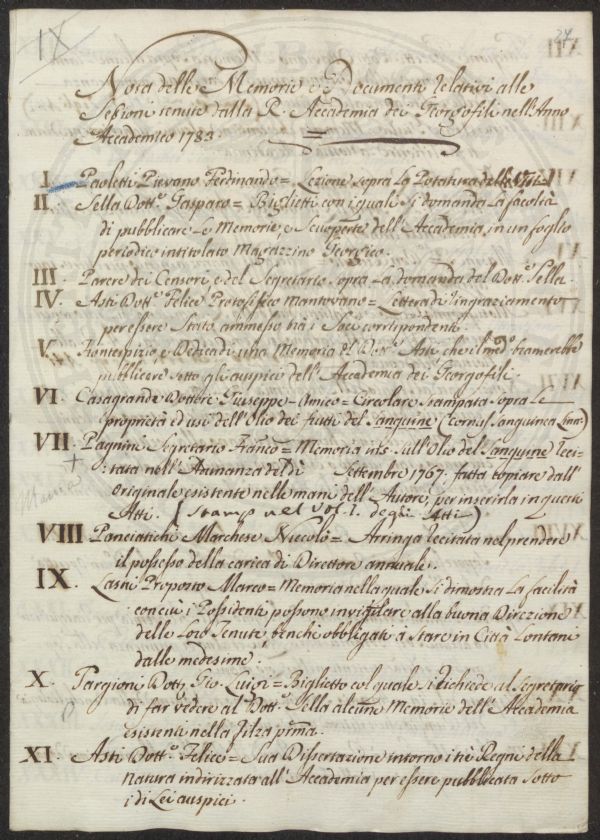 IX
27
Nota delle Memorie e Documenti relativi alle
Sessioni tenute dalla R. Accademia dei Georgofili nell'Anno
Accademico 1783.
I. Paoletti Pievano Ferdinando = Lezione sopra La Potatura delle Viti
II. Sella Dott.o Gasparo = Biglietti con i quali si domanda La facoltà
di pubblicare Le Memorie, e Scuoperte dell'Accademia, in un foglio
periodico intitolato Magazzino Georgico.
III. Parere dei Censori, e del Segretario sopra La domanda del Dott.o Sella.
IV. Asti Dott.o Felice Protofisico Mantovano = Lettera di ringraziamento
per essere Stato ammesso tra i Soci corrispondenti.
V. Frontespizio, e Dedica di una Memoria del Dott.o Asti, che il med.o bramerebbe
pubblicare sotto gli auspici dell'Accademia dei Georgofili.
VI. Casagrande Dottore Giuseppe = Circolare Stampata sopra Le
proprietà ed usi dell'Olio dei frutti del Sanguine (Cornus Sanguinea Linn:)
VII. Pagnini Segretario Franc.o = Memoria ms. Sull'Olio del Sanguine reci-
tata nell'Adunanza del dì Settembre 1767. fatta copiare dall'
Originale esistente nelle mani dell'Autore, per inserirla in questi
Atti. (Stamp. nel Vol. I. degli Atti)
VIII Panciatichi Marchese Niccolò = Arringa recitata nel prendere
il possesso della carica di Direttore annuale.
IX. Lastri Proposto Marco = Memoria nella quale Si dimostra La facilità
con cui i Possidenti possono invigilare alla buona Direzione
delle Loro Tenute, benchè obbligati a Stare in Città Lontani
dalle medesime.
X. Targioni Dott. Gio. Luigi = Biglietto col quale Si richiede al Segretario
di far vedere al Dott. Sella alcune Memorie dell'Accademia
esistenti nella Filza prima.
XI. Asti Dott.o Felice = Sua Dissertazione intorno i tre Regni della
natura indirizzata all'Accademia per essere pubblicata Sotto
i di Lei auspici.